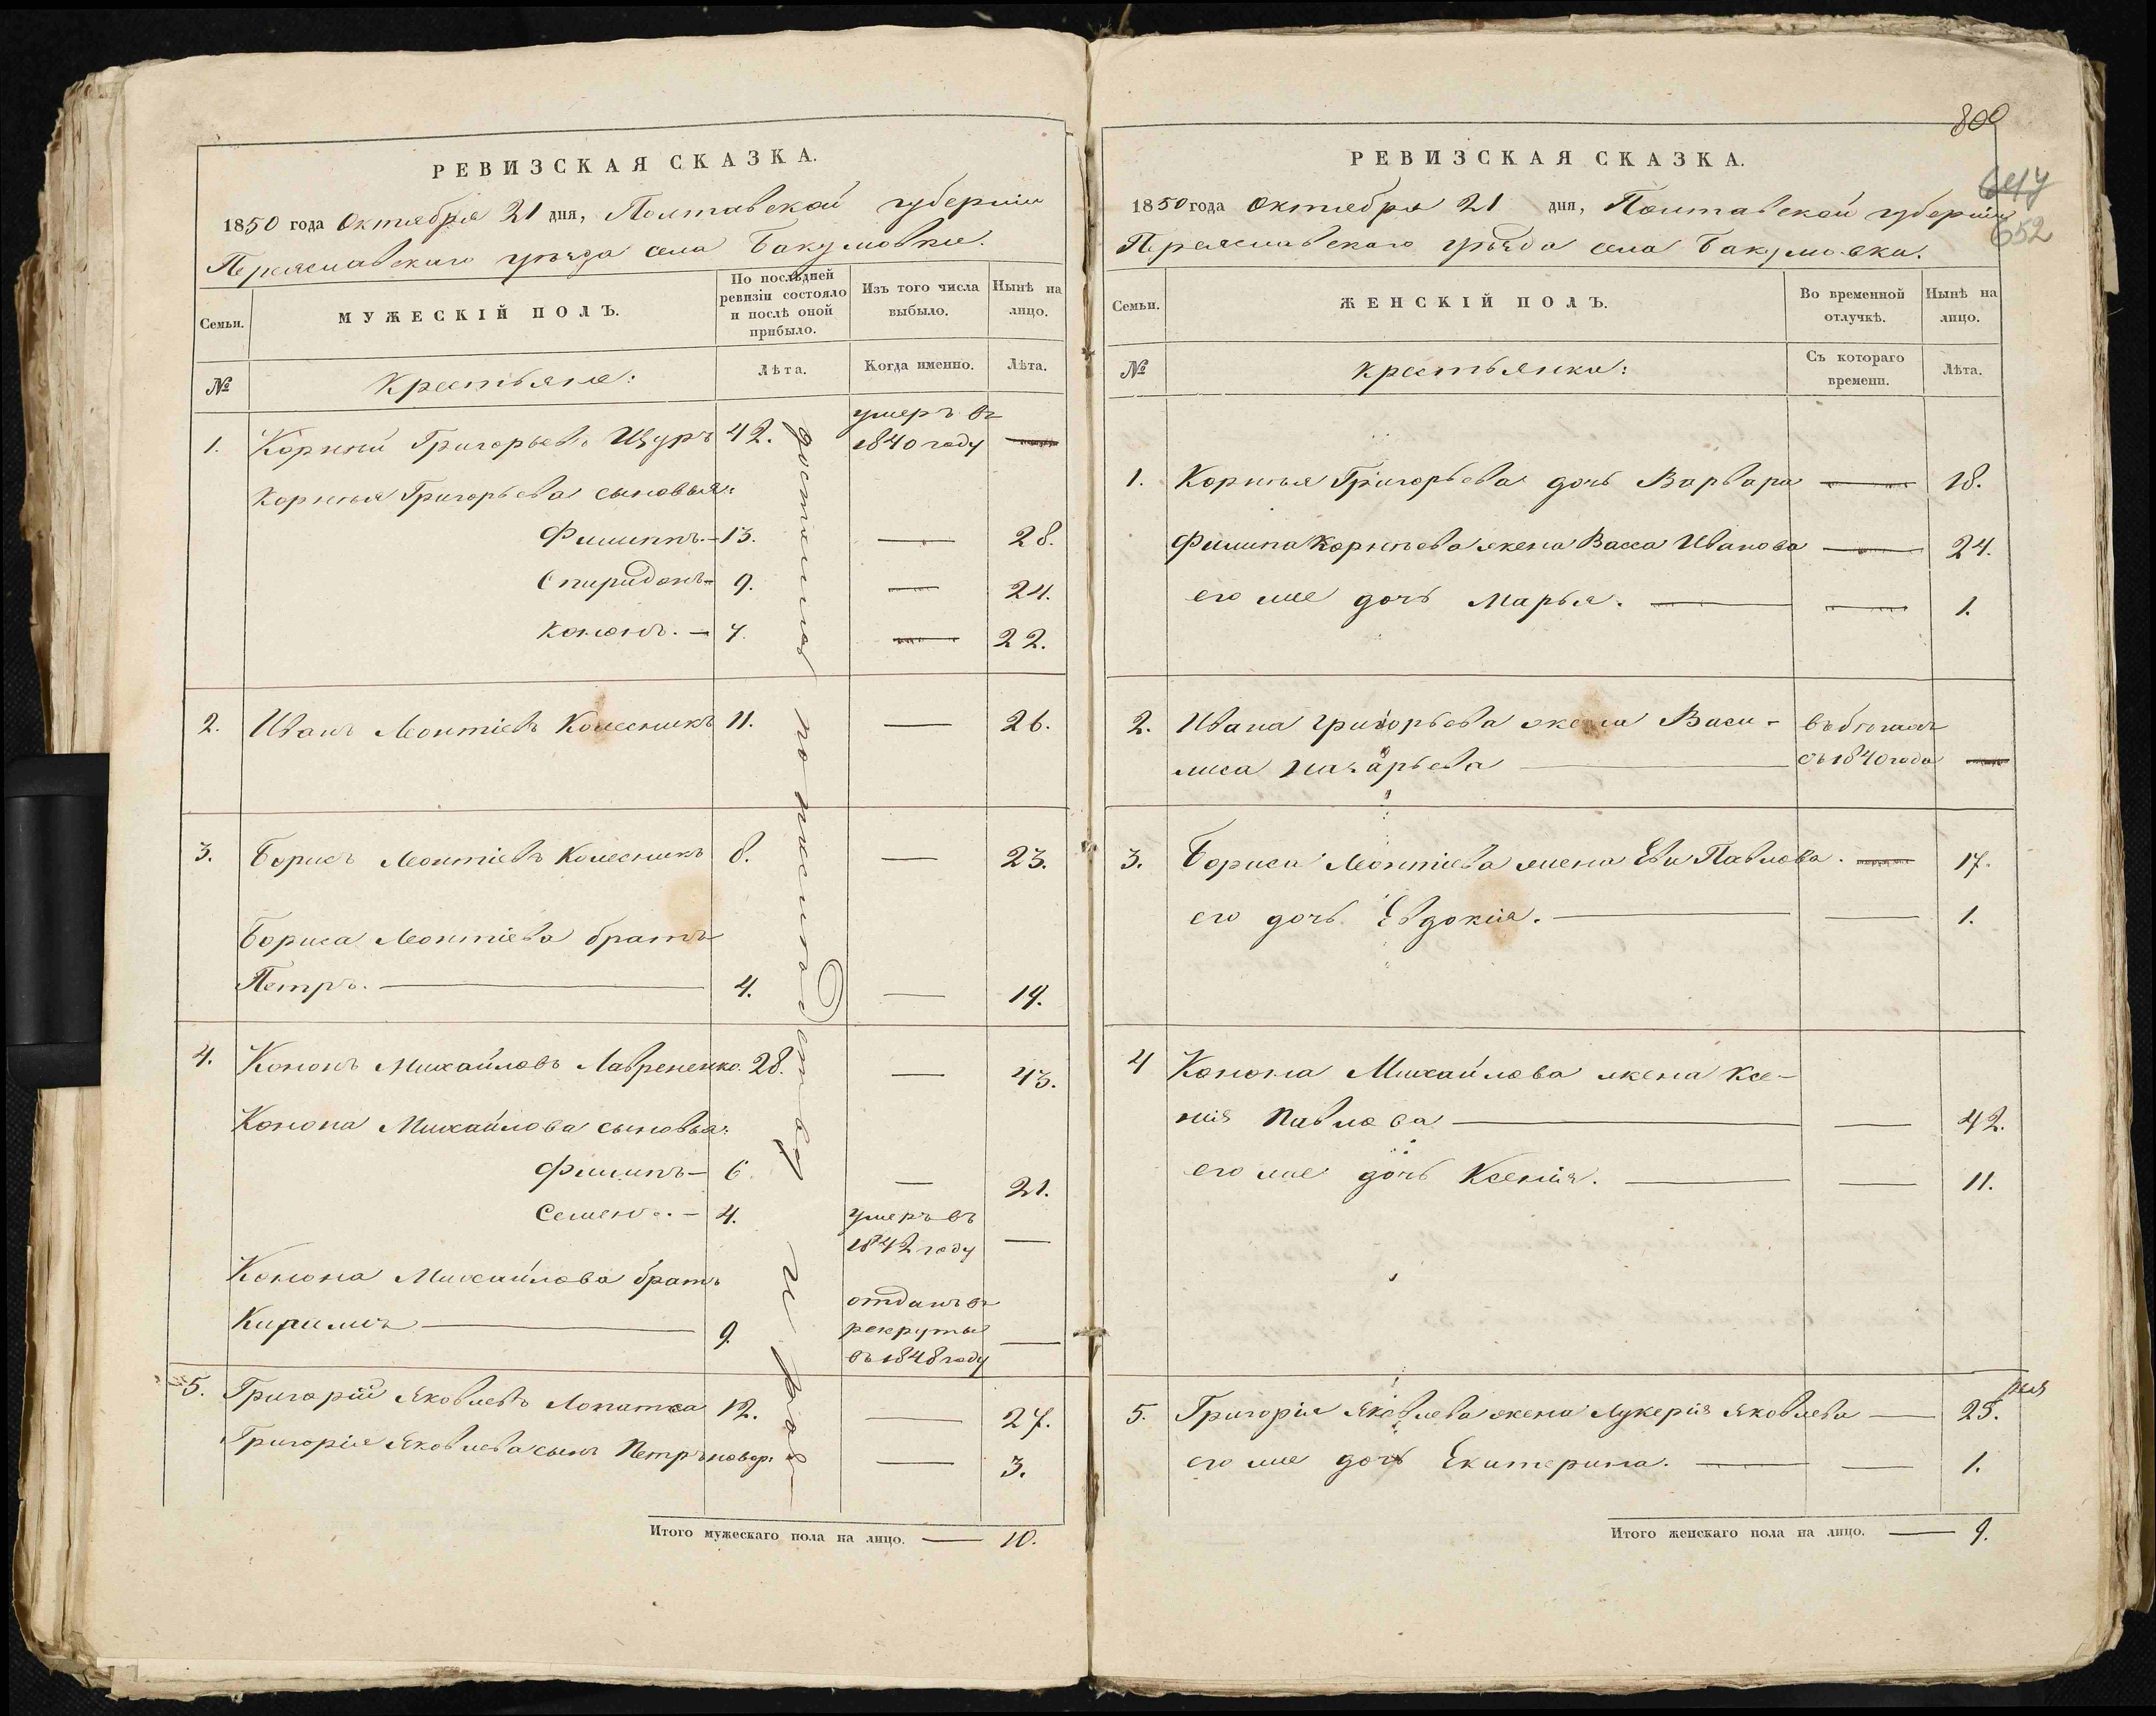 РЕВИЗСКАЯ СКАЗКА.
1850 года Октября 21 дня, Полтавской губерніи
Переяславскаго уѣзда села Бакумовки.
Семьи.
МУЖЕСКІЙ ПОЛЪ.
По послѣдней ревизіи состояло и послѣ оной прибыло.
Изъ того числа выбыло.
Нынѣ на лицо.
№
Крестьяне:
Лѣта.
Когда именно.
Лѣта.
1. Корній Григорьевъ Щуръ 42. умеръ въ 1840 году —
Корнѣя Григорьева сыновья:
Филиппъ. — 13. — 28.
Спиридонъ — 9. — 24.
Кононъ. — 7. — 22.
2. Иванъ Леонтіевъ Колесникъ 11. — 26.
3. Борисъ Леонтіевъ Колесникъ 8. — 23.
Бориса Леонтіева братъ
Петръ. — 4. — 19.
4. Кононъ Михайловъ Лаврененко. 28. — 43.
Конона Михайлова сыновья:
Филипъ — 6. — 21.
Семенъ. — 4. умеръ въ 1842 году —
Конона Михайлова братъ
Кирилъ — 9. отданъ въ рекруты въ 1848 году —
5. Григорій Яковлевъ Лопатка 12. — 27.
Григорія Яковлева сынъ Петръ новор. — 3.
Итого мужескаго пола на лицо. — 10.
800
647
652
РЕВИЗСКАЯ СКАЗКА.
1850 года Октября 21 дня, Полтавской губерніи
Переяславскаго уѣзда села Бакумовки.
Семьи.
ЖЕНСКІЙ ПОЛЪ.
Во временной отлучкѣ.
Нынѣ на лицо.
№
Крестьянки:
Съ котораго времени.
Лѣта.
1. Корнѣя Григорьева дочь Варвара — 18.
Филипа Корнѣева жена Васса Иванова — 24.
его же дочь Марья. — — 1.
2. Ивана Григорьева жена Васи-
лиса — въ бѣгахъ съ 1840 года —
3. Бориса Леонтіева жена Ева Павлова. — 17.
его дочь Евдокія. — — 1.
4 Конона Михайлова жена Ксе-
нія Павлова — — 42.
его же дочь Ксенія. — — 11.
5. Григорія Яковлева жена Лукерія Яковлева — 25.
его же дочь Екатерина. — — 1.
Итого женскаго пола на лицо. — 9.